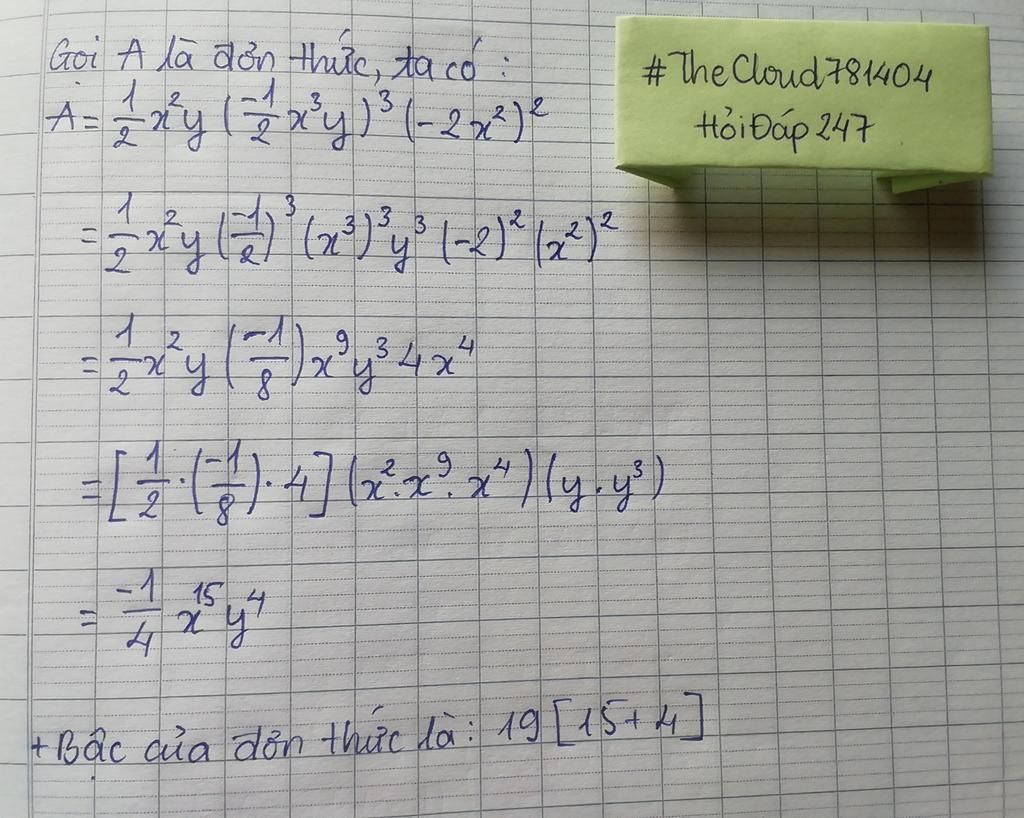 Gọi A là đơn thức, ta có :
A = 1/2 x²y (-1/2 x³y)³ (-2x²)²
= 1/2 x²y (-1/2)³ (x³)³ y³ (-2)² (x²)²
= 1/2 x²y (-1/8) x⁹y³ 4x⁴
= [1/2 · (-1/8) · 4] (x² . x⁹ . x⁴) (y . y³)
= -1/4 x¹⁵ y⁴
+ Bậc của đơn thức là: 19 [15+4]
#TheCloud781404
HỏiĐáp 247